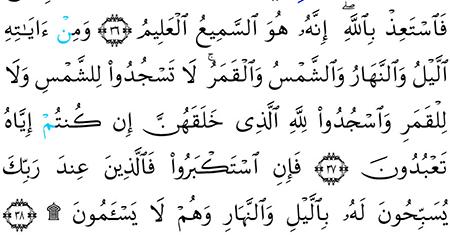 فَٱسۡتَعِذۡ بِٱللَّهِۖ إِنَّهُۥ هُوَ ٱلسَّمِيعُ ٱلۡعَلِيمُ ٣٦ وَمِنۡ ءَايَٰتِهِ
ٱلَّيۡلُ وَٱلنَّهَارُ وَٱلشَّمۡسُ وَٱلۡقَمَرُۚ لَا تَسۡجُدُواْ لِلشَّمۡسِ وَلَا
لِلۡقَمَرِ وَٱسۡجُدُواْۤ لِلَّهِ ٱلَّذِي خَلَقَهُنَّ إِن كُنتُمۡ إِيَّاهُ
تَعۡبُدُونَ ٣٧ فَإِنِ ٱسۡتَكۡبَرُواْ فَٱلَّذِينَ عِندَ رَبِّكَ
يُسَبِّحُونَ لَهُۥ بِٱلَّيۡلِ وَٱلنَّهَارِ وَهُمۡ لَا يَسۡـَٔمُونَ ۩ ٣٨